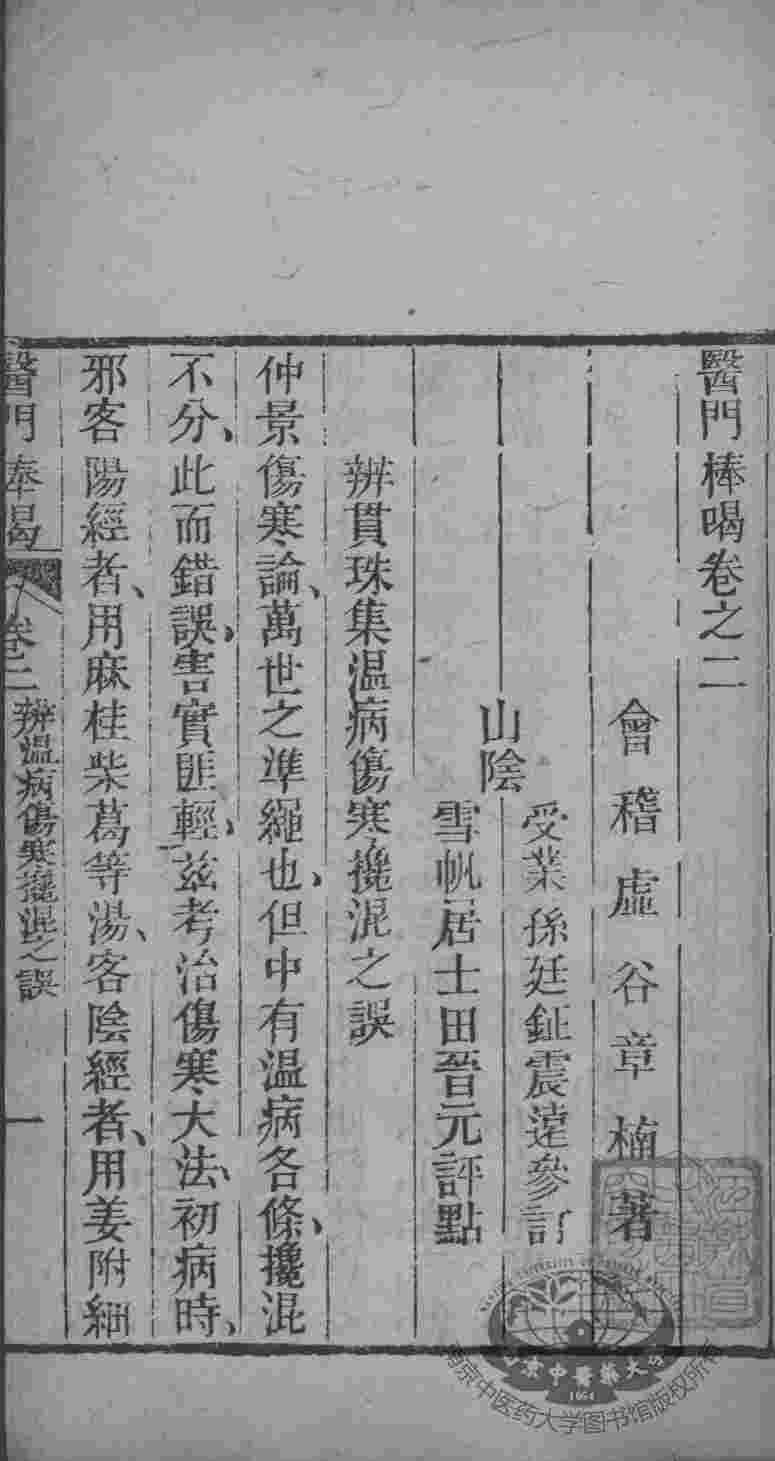 醫門棒喝卷之二
會稽虛谷章楠著
山陰
受業孫廷鉦震遠參訂
雪帆居士田晉元評點
辨貫珠集温病傷寒攙混之誤
仲景傷寒論、萬世之準繩也、但中有温病各條、攙混
不分、此而錯誤、害實匪輕、兹考治傷寒大法、初病時、
邪客陽經者、用麻桂柴葛等湯、客陰經者、用姜附細
醫門棒喝 卷二 辨温病傷寒攙混之誤 一
南京中医药大学图书馆版权所有
南京中醫藥大學
1954